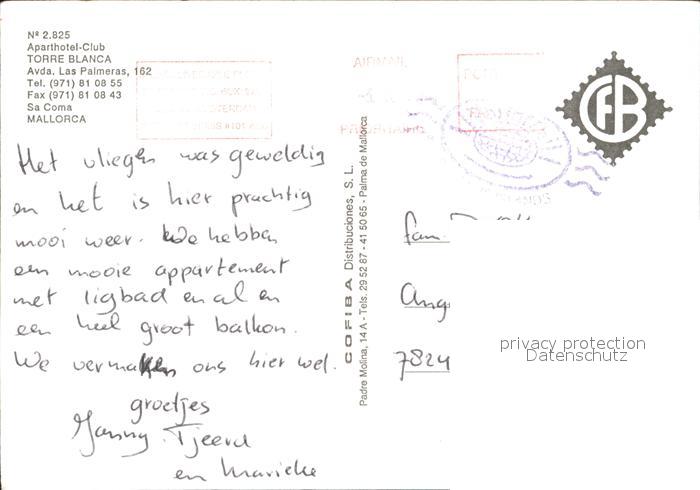 Nº 2.825
Aparthotel-Club
TORRE BLANCA
Avda. Las Palmeras, 162
Tel. (971) 81 08 55
Fax (971) 81 08 43
Sa Coma
MALLORCA
AIRMAIL
CFB
Het vliegen was geweldig
en het is hier prachtig
mooi weer. We hebben
een mooie appartement
met ligbad en al en
een heel groot balkon.
We vermaken ons hier wel.
groetjes
Janny. Tjeerd
en Marieke
COFIBA Distribuciones, S. L.
Padre Molina, 14 A - Tels. 29 52 87 - 41 50 65 - Palma de Mallorca
fam.
Ang
7824
privacy protection
Datenschutz